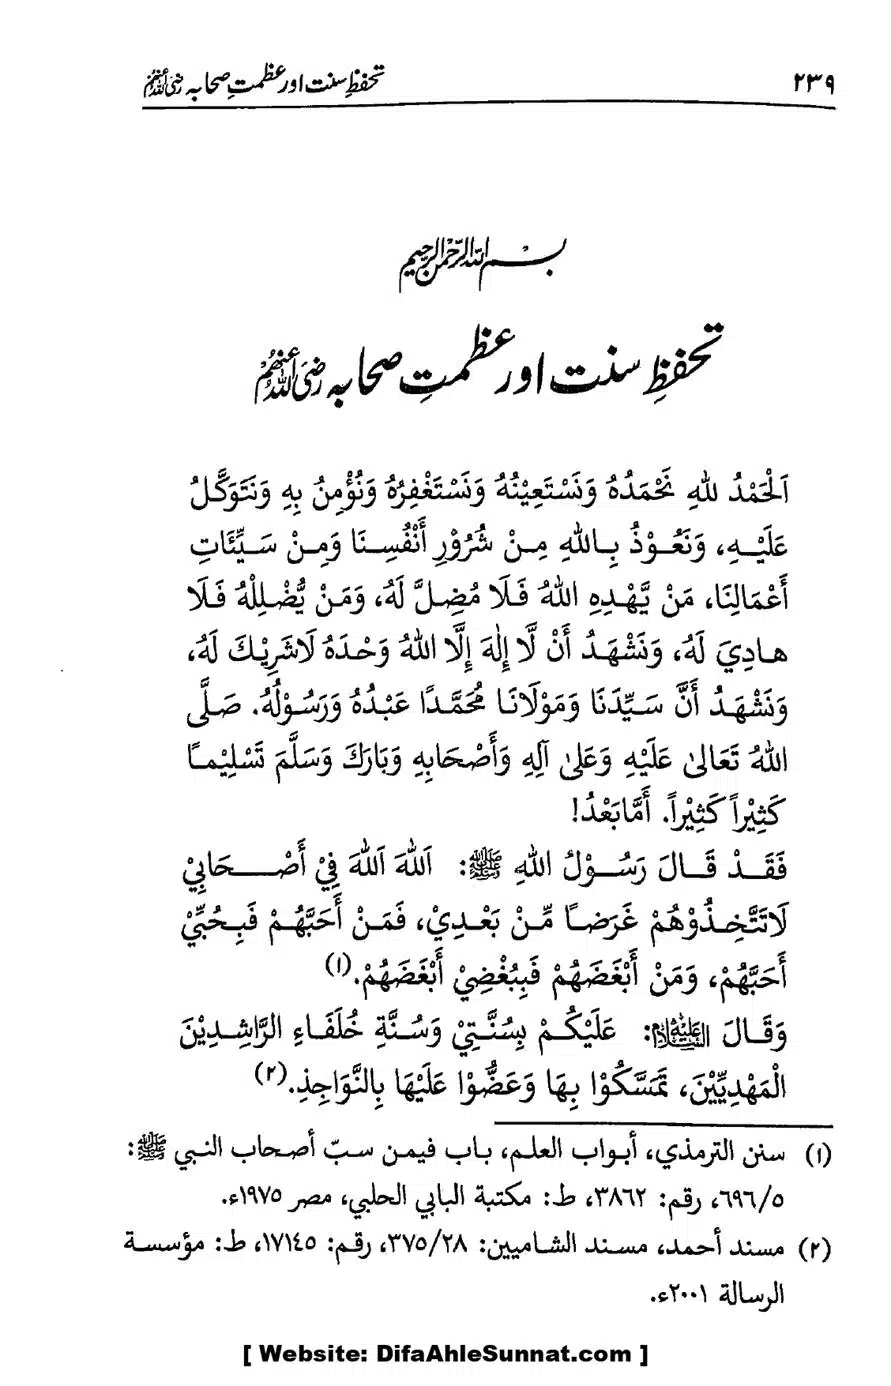 ۲۳۹ تحفظِ سنت اور عظمتِ صحابہ رضی اللہ عنہم
بسم اللہ الرحمن الرحیم
تحفظِ سنت اور عظمتِ صحابہ رضی اللہ عنہم
اَلْحَمْدُ لِلّٰهِ نَحْمَدُهُ وَنَسْتَعِيْنُهُ وَنَسْتَغْفِرُهُ وَنُؤْمِنُ بِهِ وَنَتَوَكَّلُ
عَلَيْهِ، وَنَعُوْذُ بِاللهِ مِنْ شُرُوْرِ أَنْفُسِنَا وَمِنْ سَيِّئَاتِ
أَعْمَالِنَا، مَنْ يَّهْدِهِ اللهُ فَلَا مُضِلَّ لَهُ، وَمَنْ يُّضْلِلْهُ فَلَا
هادِيَ لَهُ، وَنَشْهَدُ أَنْ لَّا إِلٰهَ إِلَّا اللهُ وَحْدَهُ لَاشَرِيْكَ لَهُ،
وَنَشْهَدُ أَنَّ سَيِّدَنَا وَمَوْلَانَا مُحَمَّدًا عَبْدُهُ وَرَسُوْلُهُ. صَلَّى
اللهُ تَعَالىٰ عَلَيْهِ وَعَلىٰ آلِهِ وَأَصْحَابِهِ وَبَارَكَ وَسَلَّمَ تَسْلِيْمًا
كَثِيْراً كَثِيْراً. أَمَّابَعْدُ!
فَقَدْ قَالَ رَسُوْلُ اللهِ ﷺ: اَللهَ اَللهَ فِيْ أَصْحَابِيْ
لَاتَتَّخِذُوْهُمْ غَرَضاً مِّنْ بَعْدِيْ، فَمَنْ أَحَبَّهُمْ فَبِحُبِّيْ
أَحَبَّهُمْ، وَمَنْ أَبْغَضَهُمْ فَبِبُغْضِيْ أَبْغَضَهُمْ.(۱)
وَقَالَ عَلَيْهِ السَّلَام: عَلَيْكُمْ بِسُنَّتِيْ وَسُنَّةِ خُلَفَاءِ الرَّاشِدِيْنَ
الْمَهْدِيِّيْنَ، تَمَسَّكُوْا بِهَا وَعَضُّوْا عَلَيْهَا بِالنَّوَاجِذِ.(۲)
(۱) سنن الترمذي، أبواب العلم، باب فيمن سبّ أصحاب النبي ﷺ:
٥/٦٩٦، رقم: ٣٨٦٢، ط: مكتبة البابي الحلبي، مصر ١٩٧٥ء.
(۲) مسند أحمد، مسند الشاميين: ٢٨/٣٧٥، رقم: ١٧١٤٥، ط: مؤسسة
الرسالة ٢٠٠١ء.
[ Website: DifaAhleSunnat.com ]